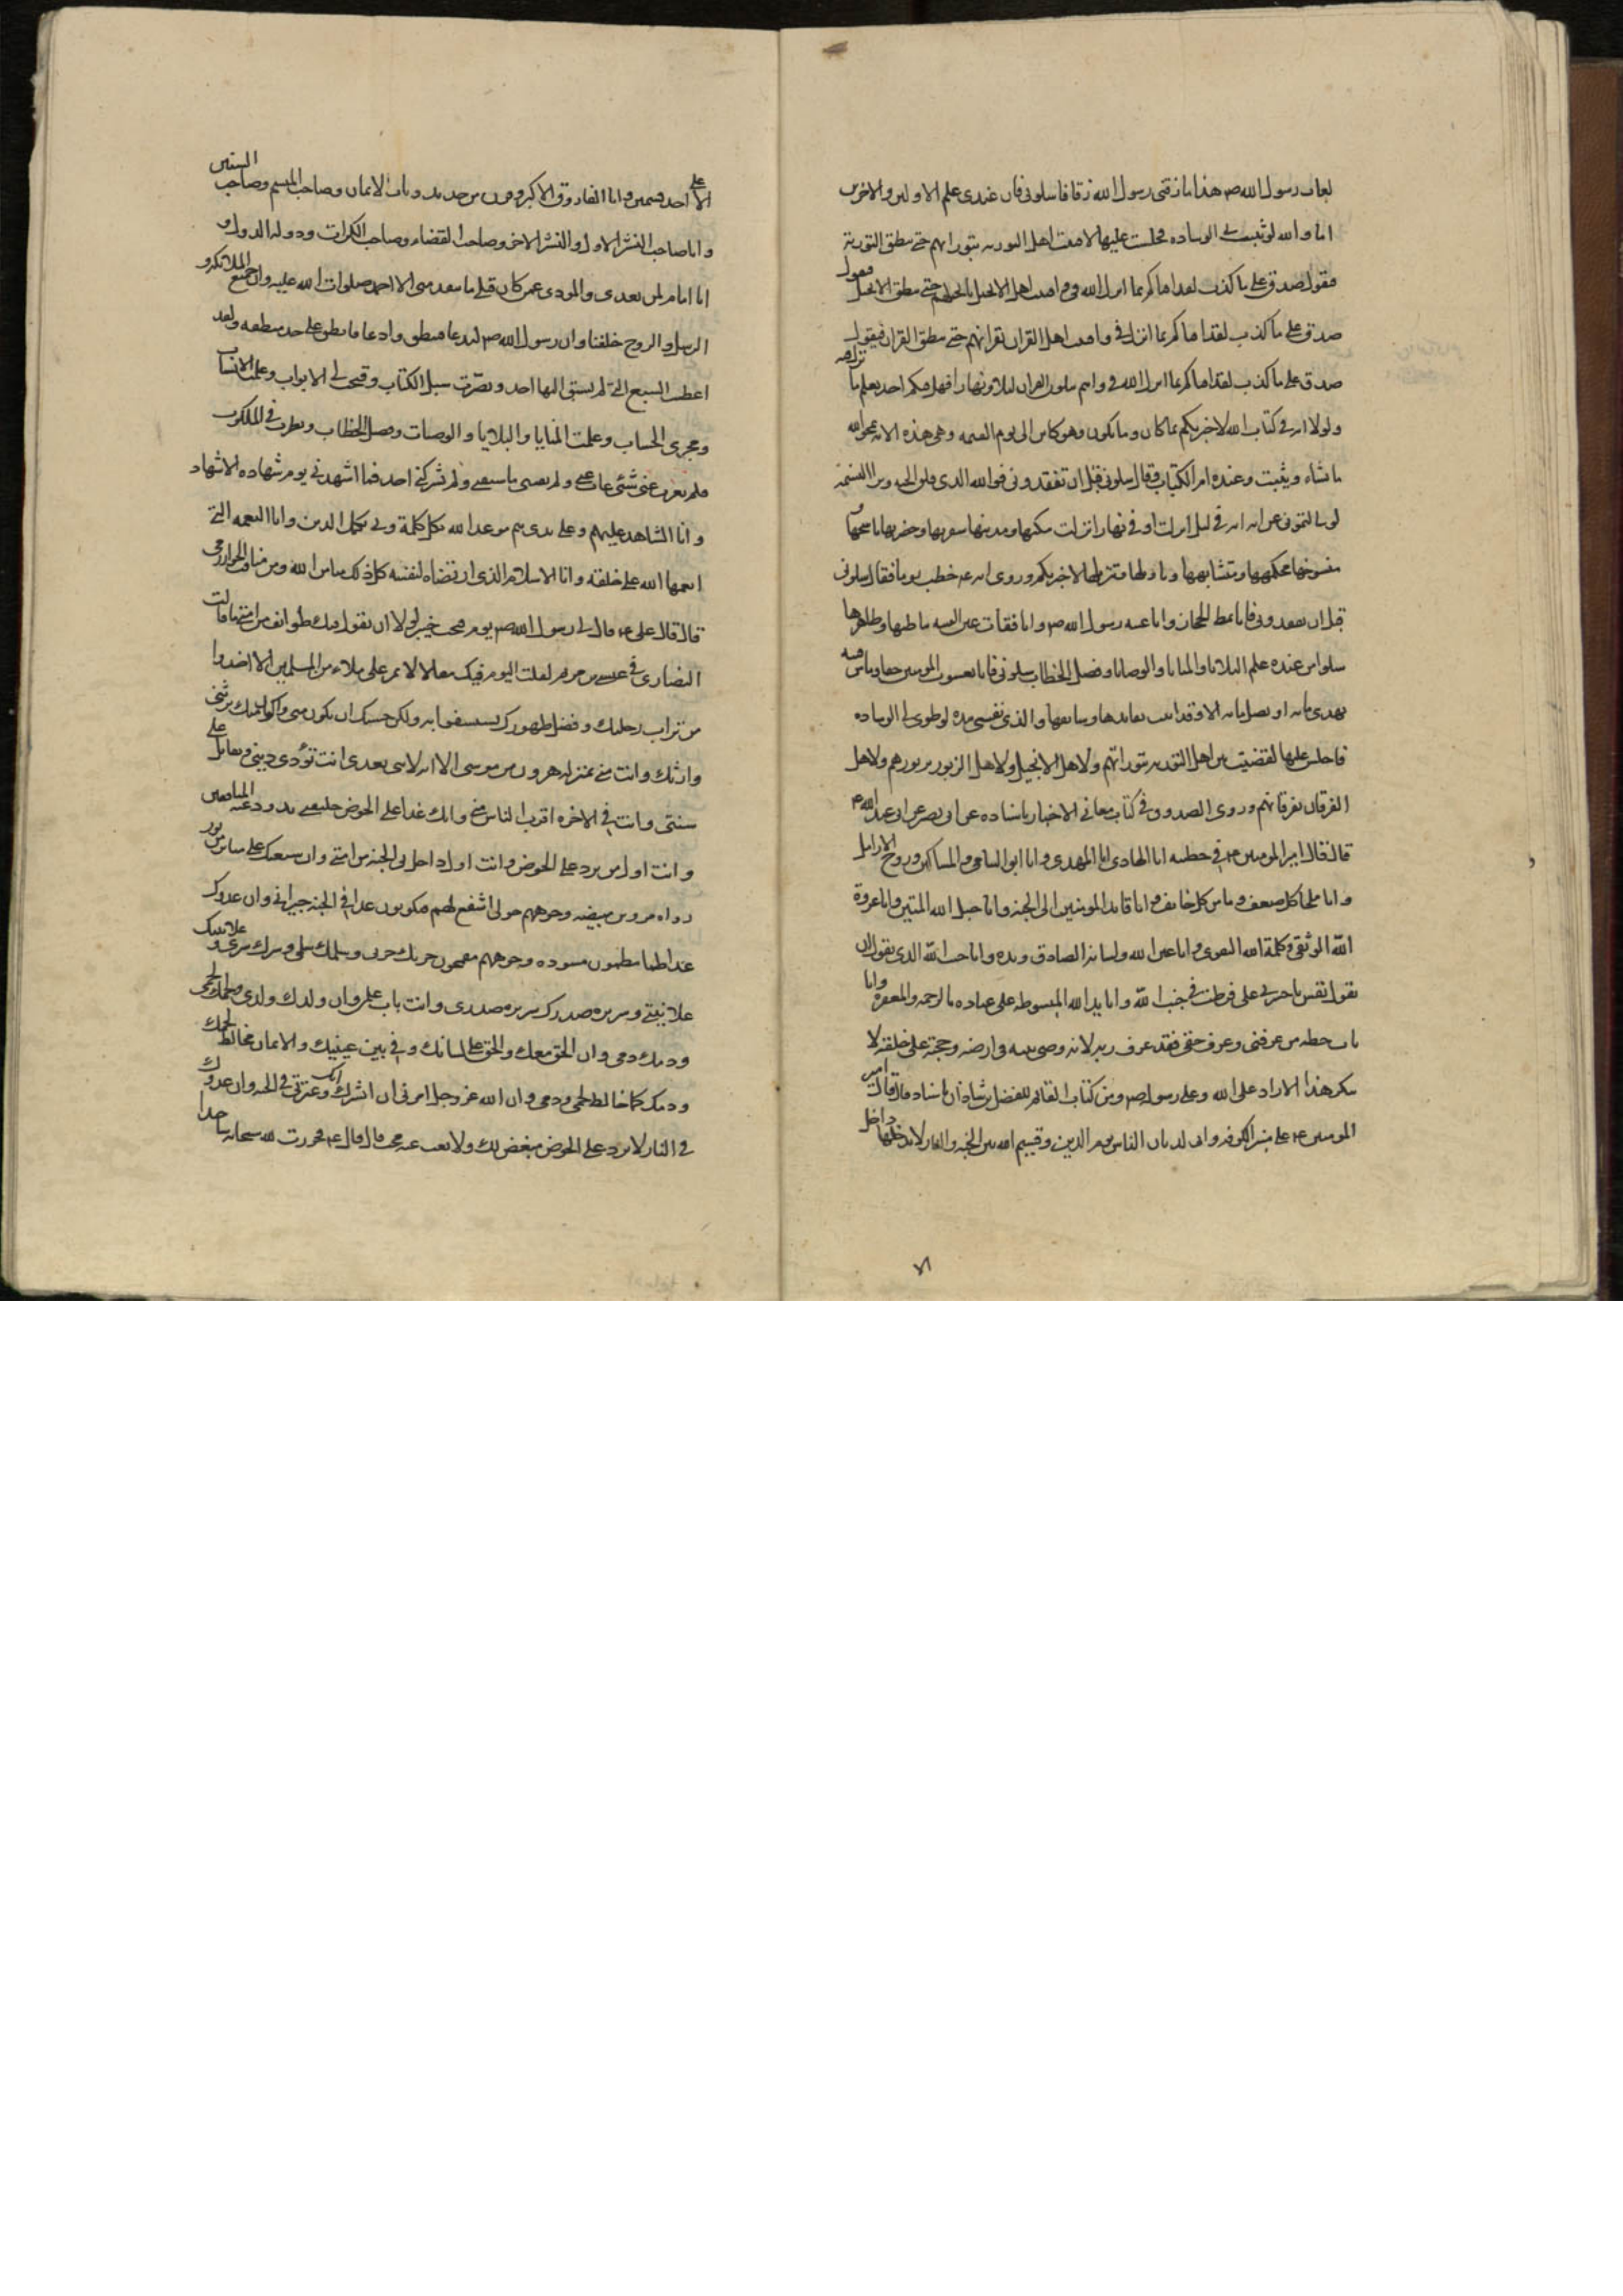 لعاب رسول الله ص هذا ما زقنى رسول الله زقا فاسلونى فان عندى علم الاولين والاخرين
اما والله لو ثنيت لى الوساده فجلست عليها لافتيت اهل التوريه بتوراتهم حتى تنطق التورية
فتقول صدق على ما كذب لقد افتاكم بما انزل الله فى وافتيت اهل الانجيل بانجيلهم حتى ينطق الانجيل فيقول
صدق على ما كذب لقد افتاكم بما انزل فى وافتيت اهل القران بقرانهم حتى ينطق القران فيقول
صدق على ما كذب لقد افتاكم بما انزل الله فى وانتم تتلون القران ليلا ونهارا فهل فيكم احد يعلم ما نزل فيه
ولولا ايه فى كتاب الله لاخبرتكم بما كان وما يكون وهو كاين الى يوم القيمه وهى هذه الايه يمحو الله
ما يشاء ويثبت وعنده ام الكتاب وقال سلونى قبل ان تفقدونى فوالله الذى فلق الحبه وبرا النسمة
لو سالتمونى عن ايه ايه فى ليل انزلت او فى نهار انزلت مكيها ومدنيها سفريها وحضريها ناسخها و
منسوخها محكمها ومتشابهها وتاويلها وتنزيلها لاخبرتكم وروى انه ع خطب يوما فقال سلونى
قبل ان تفقدونى فانا نمط الحجاز وانا عيبه رسول الله ص وانا فقات عين الفتنه باطنها وظاهرها
سلوا من عنده علم البلايا والمنايا والوصايا وفصل الخطاب سلونى فانا يعسوب المومنين حقا وما من فئه
تهدى مايه او تضل مايه الا وقد اتيت بقايدها وسايقها والذى نفسى بيده لو طوى لى الوساده
فاجلس عليها لقضيت بين اهل التوريه بتوراتهم ولاهل الانجيل ولاهل الزبور بزبورهم ولاهل
الفرقان بفرقانهم وروى الصدوق فى كتاب معانى الاخبار باسناده عن ابى بصير عن ابى عبد الله ع
قال قال امير المومنين ع فى خطبته انا الهادى انا المهدى وانا ابو اليتامى والمساكين وزوج الارامل
وانا ملجا كل ضعيف ومامن كل خايف وانا قايد المومنين الى الجنه وانا حبل الله المتين وانا عروة
الله الوثقى وكلمة الله التقوى وانا عين الله ولسانه الصادق ويده وانا جنب الله الذى يقول ان
تقول نفس يا حسرتى على فرطت فى جنب الله وانا يد الله المبسوطه على عباده بالرحمه والمغفره وانا
باب حطه من عرفنى وعرف حقى فقد عرف ربه لانه وصى نبيه فى ارضه وحجته على خلقه لا
ينكر هذا الا راد على الله وعلى رسوله ص ومن كتاب القائم للفضل بن شاذان باسناده قال قال امير
المومنين ع على منبر الكوفه وانى لديان الناس يوم الدين وقسيم الله بين الجنه والنار لا يدخلها داخل
الا على احد قسمين وانا الفاروق الاكبر وقرن من حديد وباب الايمان وصاحب الميسم وصاحب السنين
وانا صاحب النشر الاول والنشر الاخر وصاحب القضاء وصاحب الكرات ودولة الدول و
انا امام لمن بعدى والمودى عمن كان قبلى ما يتقدمنى الا احمد صلوات الله عليه وان جميع الملائكه و
الرسل والروح خلفنا وان رسول الله ص ليدعا فينطق وادعا فانطق على حد منطقه ولقد
اعطيت السبع التى لم يسبق اليها احد وبصرت سبل الكتاب وفتحت لى الابواب وعلمت الانساب
ومجرى الحساب وعلمت المنايا والبلايا والوصيات وفصل الخطاب ونظرت فى الملكوت
فلم يعزب عنى شئ غاب عنى ولم يفتنى ما سبقنى ولم يشركنى احد فيما اشهدنى يوم شهاده الاشهاد
وانا الشاهد عليهم وعلى يدى يتم موعد الله بكل كلمة وبى يكمل الدين وانا النعمه التى
انعمها الله على خلقه وانا الاسلام الذى ارتضاه لنفسه كل ذلك منا من الله ومن مناقب الخوارزمى
قال قال على ع قال لى رسول الله ص يوم فتحت خيبر لولا ان تقول فيك طوايف من امتى ما قالت
النصارى فى عيسى بن مريم لقلت اليوم فيك مقالا لا تمر على ملاء من المسلمين الا اخذوا
من تراب رجليك وفضل طهورك يستشفوا به ولكن حسبك ان تكون منى وانا منك ترثنى
وارثك وانت منى بمنزله هرون من موسى الا انه لا نبى بعدى انت تؤدى دينى وتقاتل على
سنتى وانت فى الاخره اقرب الناس منى وانك غدا على الحوض خليفتى تذود عنه المنافقين
وانت اول من يرد على الحوض وانت اول داخل فى الجنه من امتى وان شيعتك على منابر من نور
رواء مرويين مبيضه وجوههم حولى اشفع لهم فيكونون غدا فى الجنه جيرانى وان عدوك
غدا ظما مظمون مسوده وجوههم مقمحون حربك حربى وسلمك سلمى وسرك سرى وعلانيتك
علانيتى وسريره صدرك سريره صدرى وانت باب علمى وان ولدك ولدى ولحمك لحمى
ودمك دمى وان الحق معك والحق على لسانك وفى بين عينيك والايمان مخالط لحمك
ودمك كما خالط لحمى ودمى وان الله عز وجل امرنى ان ابشرك انك وعترتى فى الجنه وان عدوك
فى النار لا يرد على الحوض مبغض لك ولا يغيب عنه محب قال قال ع فخررت لله سبحانه ساجدا